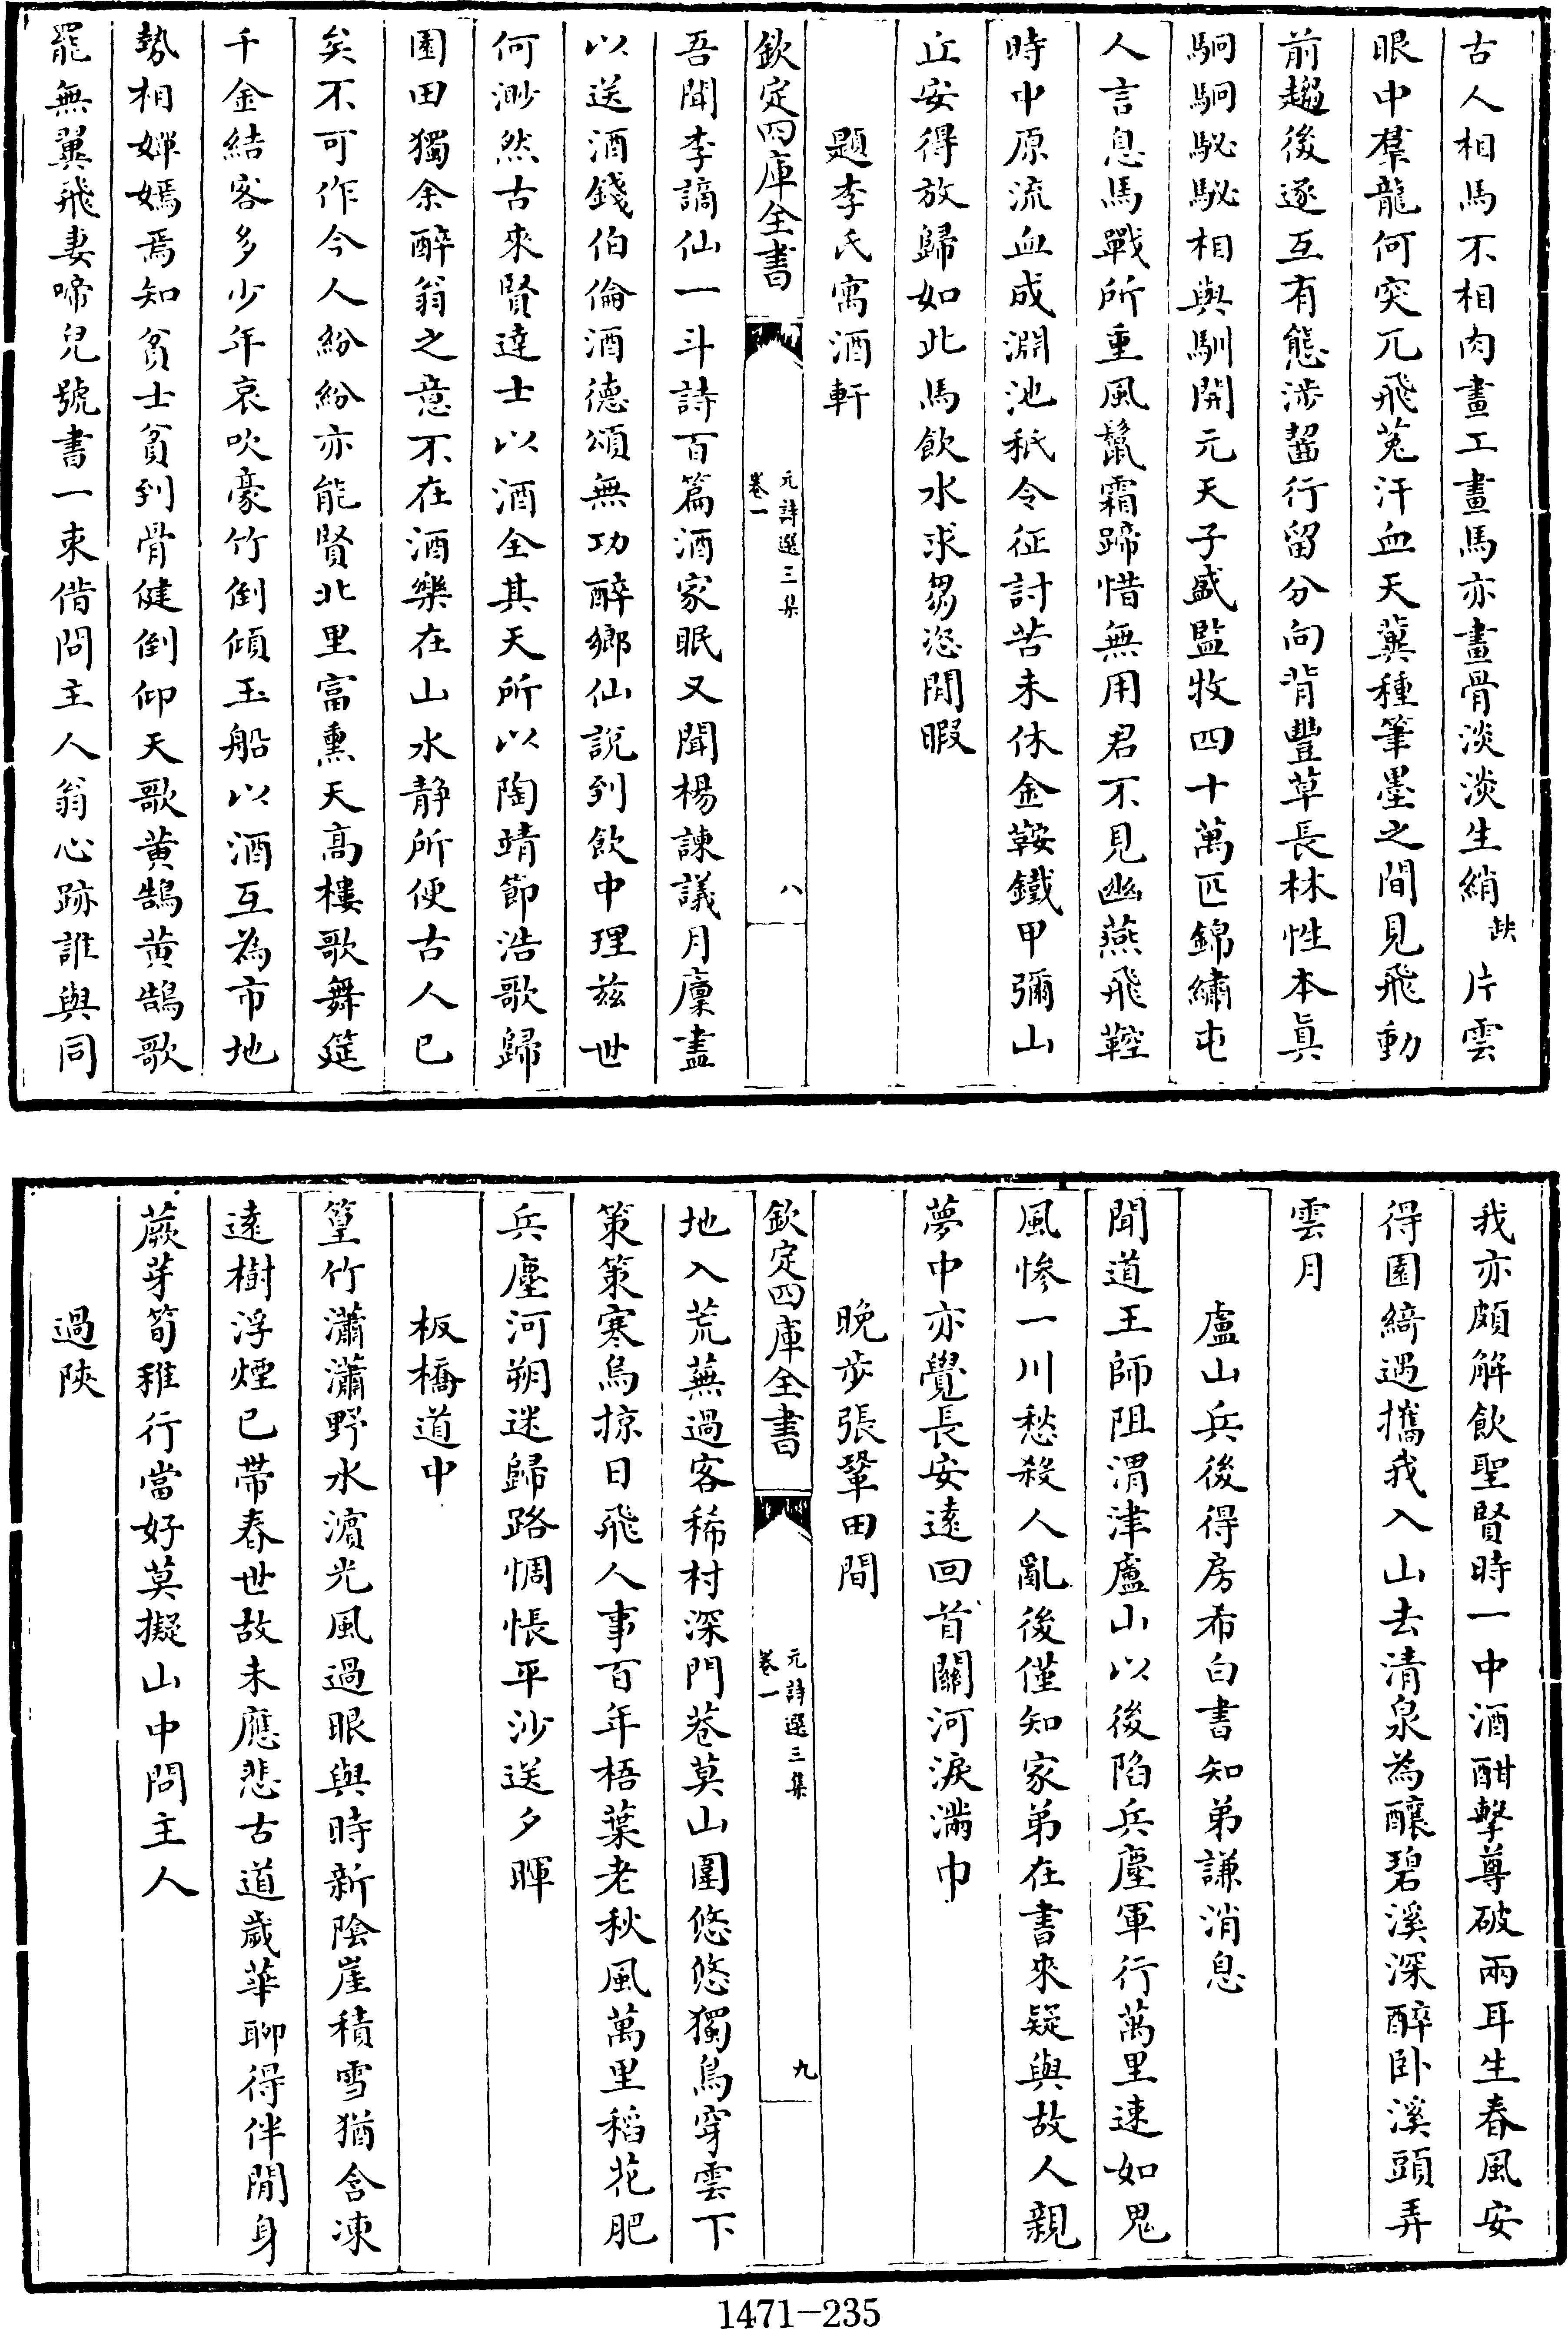 古人相馬不相肉畫工畫馬亦畫骨淡淡生綃缺片雲
眼中羣龍何突兀飛兎汗血天驥種筆墨之間見飛動
前趨後逐互有態涉齧行留分向背豐草長林性本眞
駉駉駜駜相與馴開元天子盛監牧四十萬匹錦繡屯
人言息馬戰所重風鬛霜蹄惜無用君不見幽燕飛鞚
時中原流血成淵池秖令征討苦未休金鞍鐵甲彌山
丘安得放歸如此馬飲水求芻恣閒暇
題李氏寓酒軒
欽定四庫全書
元詩選三集
卷一
八
吾聞李謫仙一斗詩百篇酒家眠又聞楊諫議月廩盡
以送酒錢伯倫酒德頌無功醉鄉仙說到飲中理兹世
何渺然古來賢達士以酒全其天所以陶靖節浩歌歸
園田獨余醉翁之意不在酒樂在山水靜所便古人已
矣不可作今人紛紛亦能賢北里富熏天高樓歌舞筵
千金結客多少年哀吹豪竹倒傾玉船以酒互為市地
勢相嬋嫣焉知貧士貧到骨健倒仰天歌黄鵠黄鵠歌
罷無翼飛妻啼兒號書一束借問主人翁心跡誰與同
我亦頗解飲聖賢時一中酒酣擊尊破兩耳生春風安
得園綺遇攜我入山去清泉為釀碧溪深醉卧溪頭弄
雲月
盧山兵後得房希白書知弟謙消息
聞道王師阻渭津盧山以後陷兵塵軍行萬里速如鬼
風慘一川愁殺人亂後僅知家弟在書來疑與故人親
夢中亦覺長安遠回首關河淚滿巾
晚步張鞏田間
欽定四庫全書
元詩選三集
卷一
九
地入荒蕪過客稀村深門巷莫山圍悠悠獨鳥穿雲下
策策寒烏掠日飛人事百年梧葉老秋風萬里稻花肥
兵塵河朔迷歸路惆悵平沙送夕暉
板橋道中
篁竹瀟瀟野水濵光風過眼與時新陰崖積雪猶含凍
遠樹浮煙已帶春世故未應悲古道歲華聊得伴閒身
蕨芽筍稚行當好莫擬山中問主人
過陝
1471-235